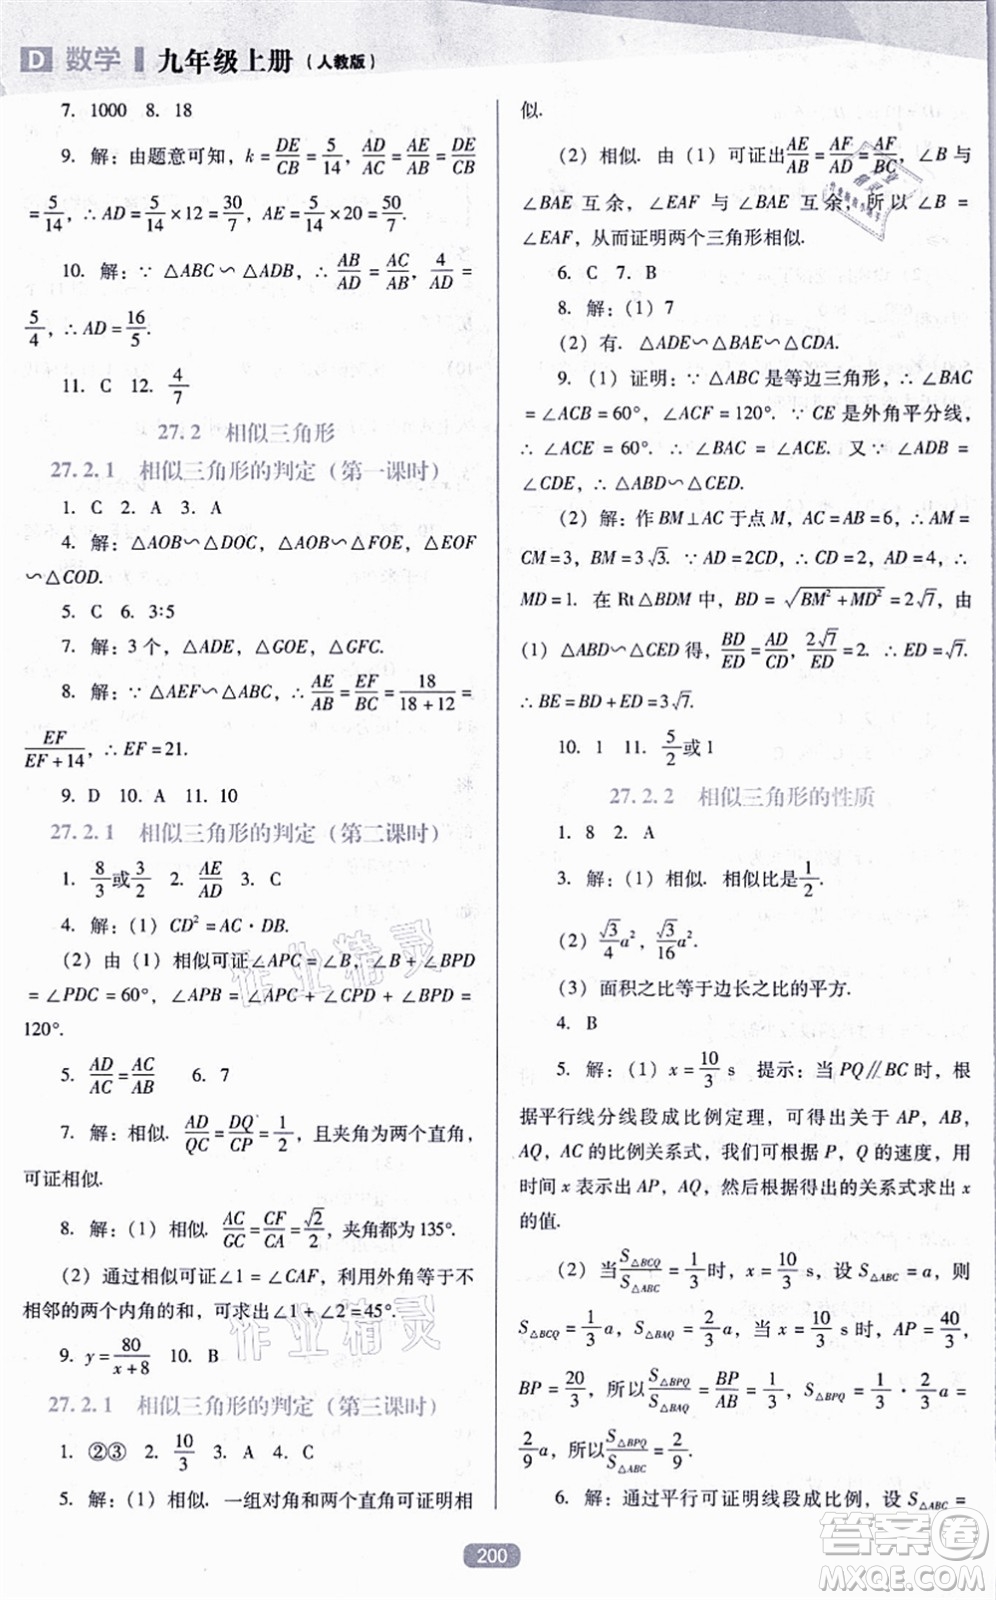 D 数学 九年级上册（人教版）
7. 1000 8. 18
9. 解：由题意可知，k=DE/CB=5/14，AD/AC=AE/AB=DE/CB
=5/14，∴AD=5/14×12=30/7，AE=5/14×20=50/7.
10. 解：∵△ABC∽△ADB，∴AB/AD=AC/AB，4/AD=
5/4，∴AD=16/5.
11. C 12. 4/7
27.2 相似三角形
27.2.1 相似三角形的判定（第一课时）
1. C 2. A 3. A
4. 解：△AOB∽△DOC，△AOB∽△FOE，△EOF
∽△COD.
5. C 6. 3∶5
7. 解：3个，△ADE，△GOE，△GFC.
8. 解：∵△AEF∽△ABC，∴AE/AB=EF/BC=18/(18+12)=
EF/(EF+14)，∴EF=21.
9. D 10. A 11. 10
27.2.1 相似三角形的判定（第二课时）
1. 8/3或3/2 2. AE/AD 3. C
4. 解：(1) CD²=AC·DB.
(2) 由（1）相似可证∠APC=∠B，∠A=∠BPD
=∠PDC=60°，∠APB=∠APC+∠CPD+∠BPD=
120°.
5. AD/AC=AC/AB 6. 7
7. 解：相似. AD/QC=DQ/CP=1/2，且夹角为两个直角，
可证相似.
8. 解：(1) 相似. AC/GC=CF/CA=√2/2，夹角都为135°.
(2) 通过相似可证∠1=∠CAF，利用外角等于不
相邻的两个内角的和，可求出∠1+∠2=45°.
9. y=80/(x+8) 10. B
27.2.1 相似三角形的判定（第三课时）
1. ②③ 2. 10/3 3. A 4. C
5. 解：(1) 相似. 一组对角和两个直角可证明相
似.
(2) 相似. 由（1）可证出AE/AB=AF/AD=AF/BC，∠B与
∠BAE互余，∠EAF与∠BAE互余，所以∠B=
∠EAF，从而证明两个三角形相似.
6. C 7. B
8. 解：(1) 7
(2) 有. △ADE∽△BAE∽△CDA.
9. (1) 证明：∵△ABC是等边三角形，∴∠BAC
=∠ACB=60°，∠ACF=120°. ∵CE是外角平分线，
∴∠ACE=60°. ∴∠BAC=∠ACE. 又∵∠ADB=
∠CDE，∴△ABD∽△CED.
(2) 解：作BM⊥AC于点M，AC=AB=6，∴AM=
CM=3，BM=3√3. ∵AD=2CD，∴CD=2，AD=4，∴
MD=1. 在Rt△BDM中，BD=√(BM²+MD²)=2√7，由
(1) △ABD∽△CED得，BD/ED=AD/CD，2√7/ED=2. ∴ED=√7.
∴BE=BD+ED=3√7.
10. 1 11. 5/2或1
27.2.2 相似三角形的性质
1. 8 2. A
3. 解：(1) 相似. 相似比是1/2.
(2) √3/4 a²，√3/16 a².
(3) 面积之比等于边长之比的平方.
4. B
5. 解：(1) x=10/3 s 提示：当PQ∥BC时，根
据平行线分线段成比例定理，可得出关于AP，AB，
AQ，AC的比例关系式，我们可根据P，Q的速度，用
时间x表示出AP，AQ，然后根据得出的关系式求出x
的值.
(2) 当S△BCQ/S△ABC=1/3时，x=10/3 s，设S△ABC=a，则
S△BCQ=1/3 a，S△BAQ=2/3 a，当x=10/3 s时，AP=40/3，
BP=20/3，所以S△BPQ/S△BAQ=BP/AB=1/3，S△BPQ=1/3·2/3 a=
2/9 a，所以S△BPQ/S△ABC=2/9.
6. 解：通过平行可证明线段成比例，设S△ABC=
200
作业精灵
作业精灵
答案卷
MXQE.COM